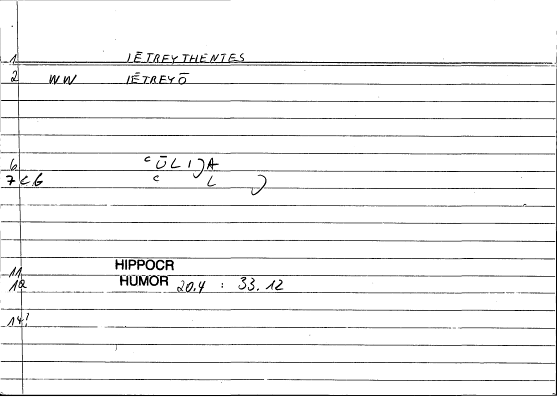 1 IĒTREYTHENTES
2 WW IĒTREYŌ
6 ᶜŪLIJA
7 LG ᶜ L )
11 HIPPOCR
12 HUMOR 20.4 : 33.12
14!